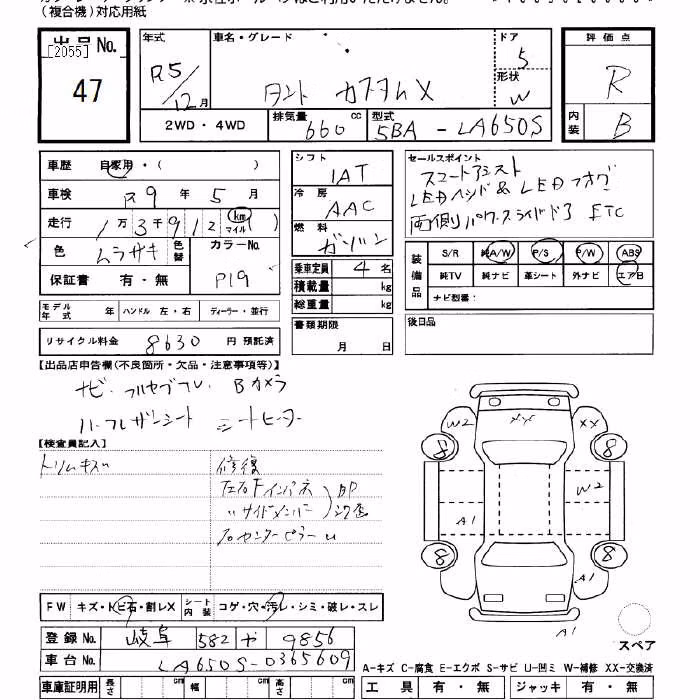 (複合機)対応用紙
出品No.
[2055]
47
年式
R5/12月
車名・グレード
タント カスタムX
ドア
5
形状
W
評価点
R
内装
B
2WD・4WD
排気量
660 cc
型式
5BA - LA650S
車歴 自家用・( )
車検 R9 年 5 月
走行 1万3千912 km マイル ( )
色 ムラサキ 色替
カラーNo.
P19
保証書 有・無
シフト
IAT
冷房
AAC
燃料
ガソリン
乗車定員 4 名
積載量 kg
総重量 kg
書類期限
月 日
セールスポイント
スマートアシスト
LEDヘッド & LEDフォグ
両側パワースライドドア ETC
装備品
S/R 純A/W P/S P/W ABS
純TV 純ナビ 革シート 外ナビ エアB
ナビ型番:
後日品
モデル年式 年 ハンドル 左・右 ディーラー・並行
リサイクル料金 8630 円 預託済
【出品店申告欄(不良箇所・欠品・注意事項等)】
ナビ・フルセグフル、Bカメラ
ハーフレザーシート シートヒーター
【検査員記入】
トリムキズ
修復
左右Fインパネ
〃サイドメンバー
BP
右センターピラー
W2 XX XX
8 8
W2
A1
8 8
A1
A1
スペア
FW キズ・トビ石・割レX
シート内装 コゲ・穴・汚レ・シミ・破レ・スレ
登録No. 岐阜 582 や 9856
車台No. LA650S-0365609
A-キズ C-腐食 E-エクボ S-サビ U-凹ミ W-補修 XX-交換済
車庫証明用 長さ cm 幅 cm 高さ cm
工具 有・無 ジャッキ 有・無